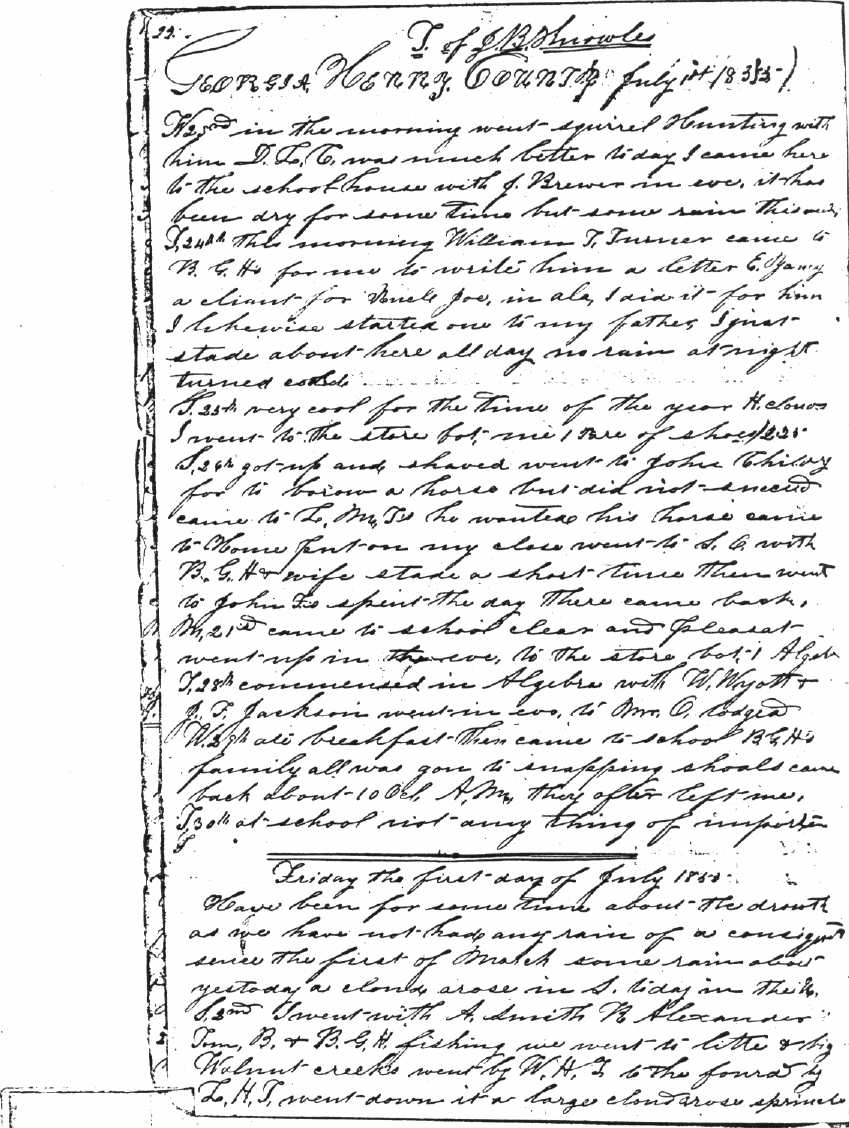 22.
J. of J. B. Knowles
GEORGIA. HENRY. COUNTY July 1st 1853)
W 23rd in the morning went squirrel Hunting with
him D. L. T. was much better today I came here
to the school house with J. Brewer in eve, it has
been dry for some time but some rain this
T, 24th this morning William T, Turner came to
B. G. Hs for me to write him a letter
a cliant for Uncle Joe, in ala, I did it for him
I likewise started one to my father, I just
stade about here all day no rain at night
turned cold
25th very cool for the time of the year H. clouds
I went to the store bot, me 1 Pare of shoes 1225
S, 26th got up and shaved went to John
for to borow a horse but did not succeed
came to L, M, Ts he wanted his horse came
to Home put on my close went to S. C. with
B. G. H & wife stade a short time then went
to John Ls spent the day there came back,
M, 21st came to school clear and pleasat
went up in the eve, to the store bot, 1 Algeb
T, 28th commensed in Algebra with W, Wyatt &
J. T. Jackson went in eve, to Mr. O. lodged
W. 29th ate breakfast then came to school B G, Hs
family all was gon to snapping shoals came
back about 10 Ocl, A, M, they after left me,
T, 30th at school not any thing of importen
Friday the first day of July 1853.
Have been for some time about the drouth
as we have not had any rain of a consiqut
sence the first of March some rain about
yestoday a cloud arose in S. today in the
S, 2nd I went with A, Smith R Alexander
Tom, B. & B. G. H. fishing we went to litle & big
Walnut creeks went by W, H, T to the fourd by
L, H, T, went down it a large cloud arose sprincle